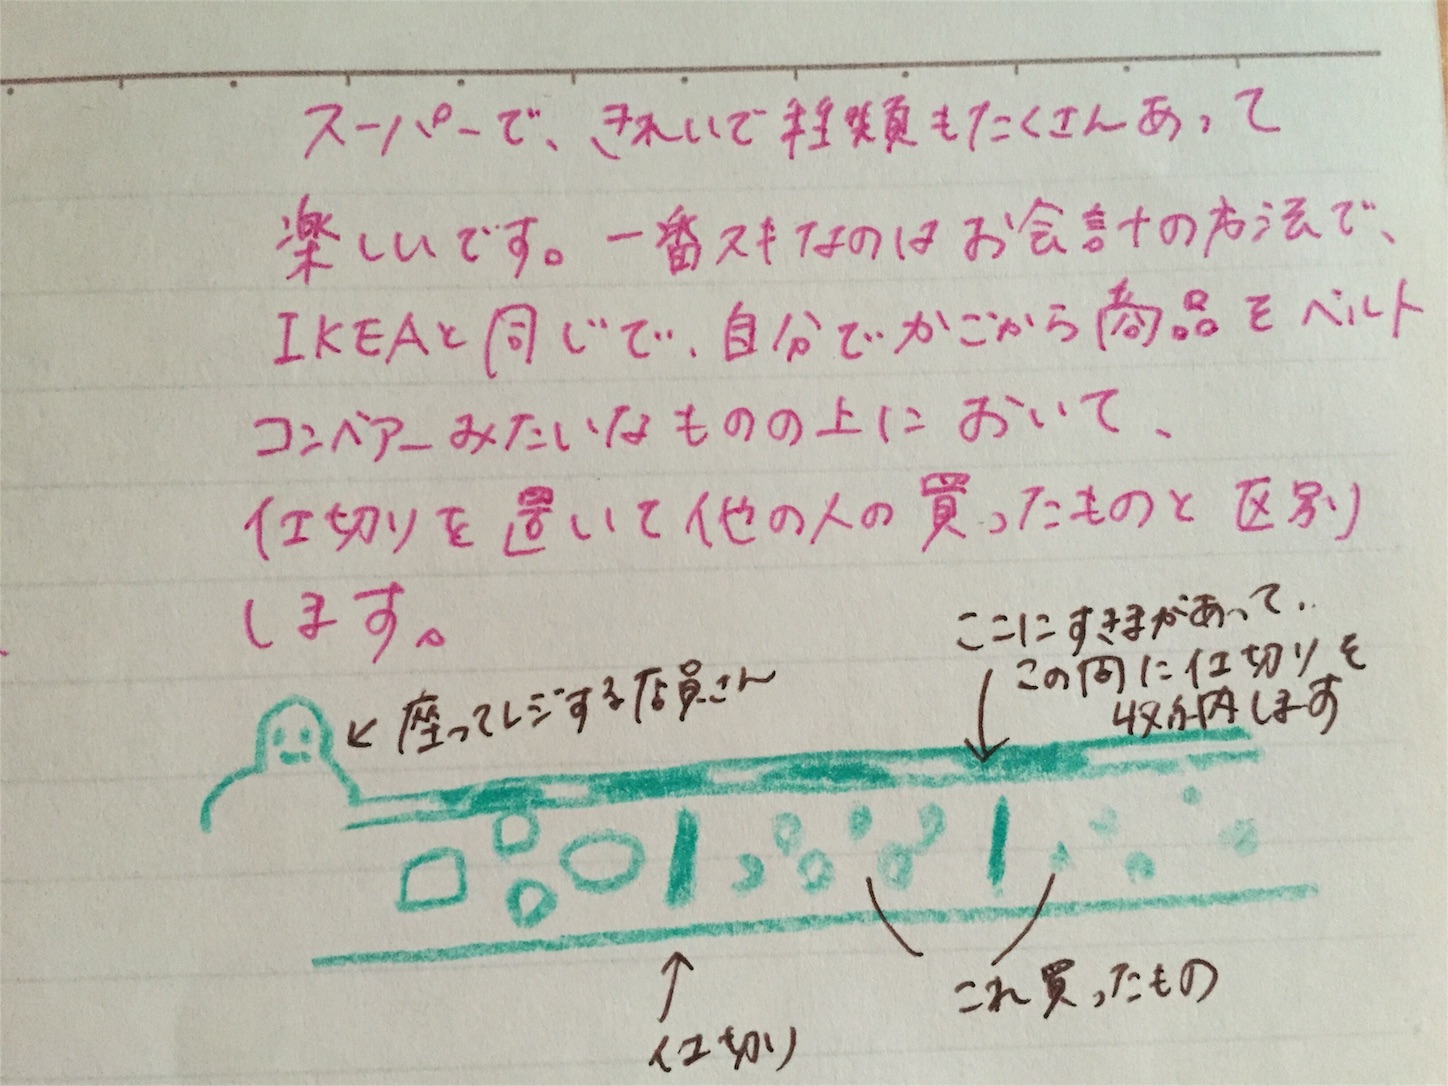 スーパーで、きれいで種類もたくさんあって
楽しいです。一番スキなのはお会計の方法で、
IKEAと同じで、自分でかごから商品をベルト
コンベアーみたいなものの上において、
仕切りを置いて他の人の買ったものと区別
します。
ここにすきまがあって、
この間に仕切りを
収納します
座ってレジする店員さん
これ買ったもの
仕切り